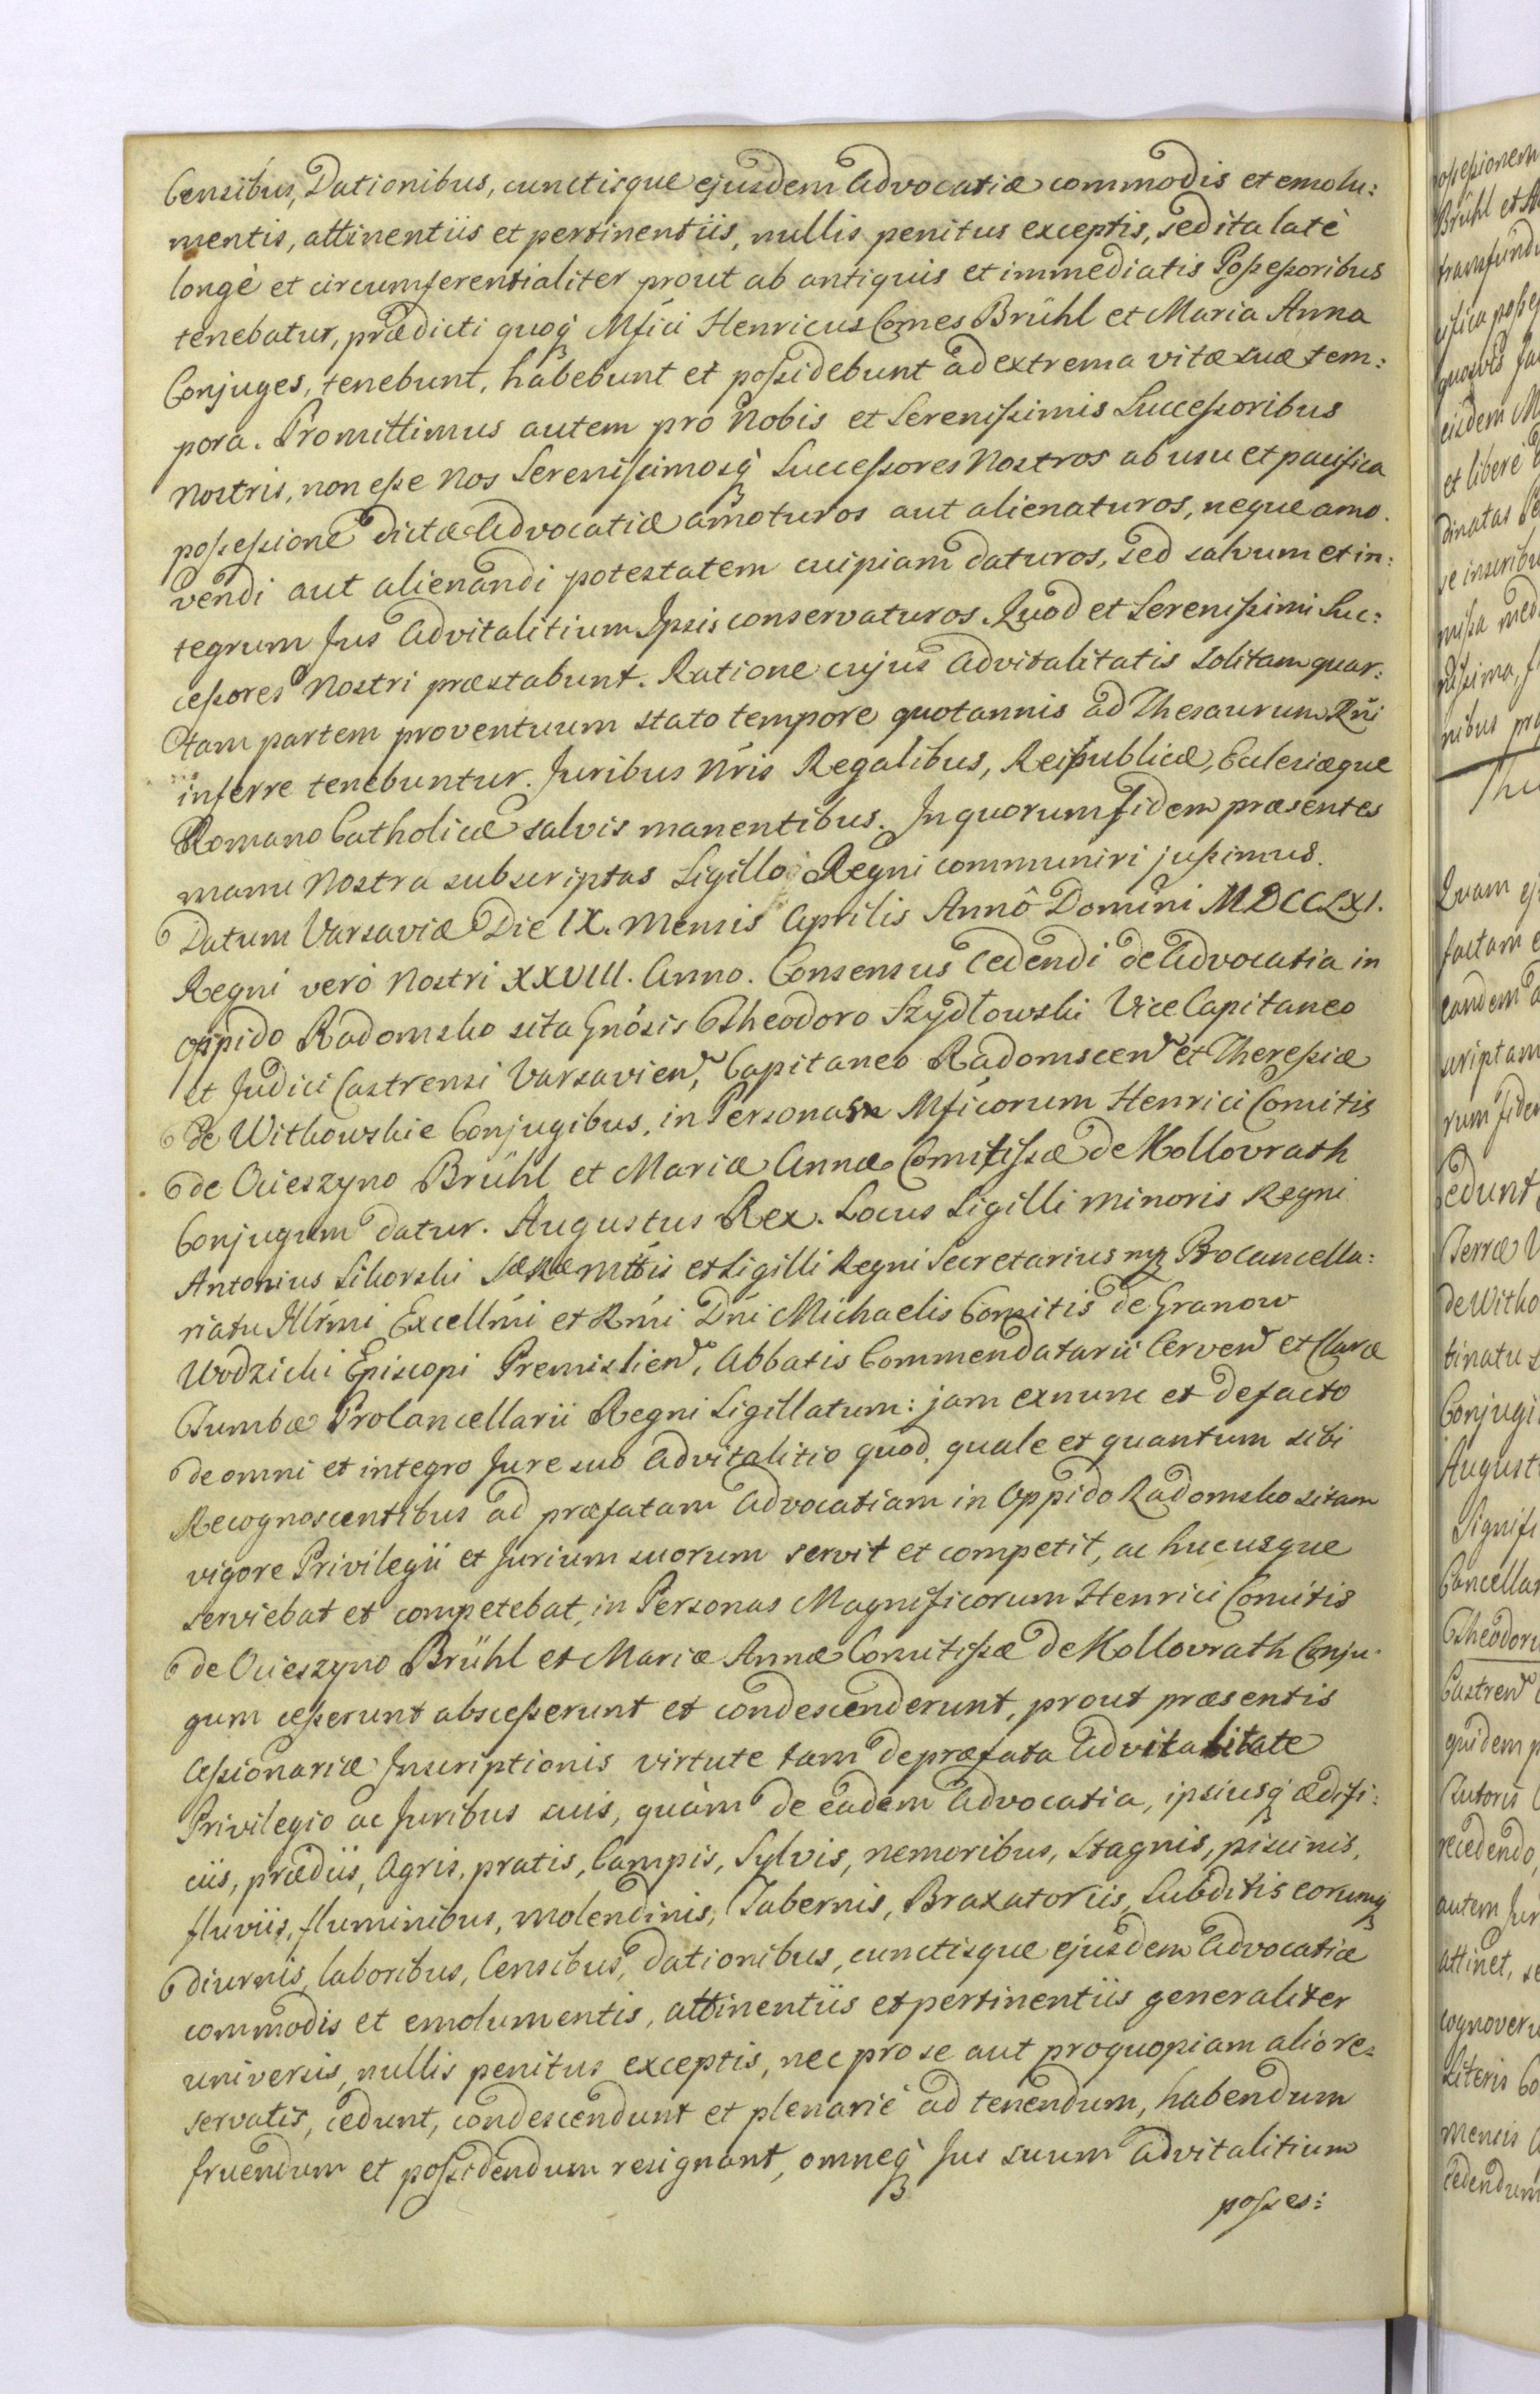 Censibus, Dationibus, cunctisque ejusdem Advocatiæ commodis et emolu:
mentis, attinentiis et pertinentiis, nullis penitus exceptis, sed ita latè
longè et circumferentialiter prout ab antiquis et immediatis Poßeßoribus
tenebatur, prædicti quoq́ꝫ Mfici Henricus Comes Brühl et Maria Anna
Conjuges, tenebunt, habebunt et poßidebunt ad extrema vitæ suæ tem:
pora. Promittimus autem pro Nobis et Serenißimis Succeßoribus
Nostris, non eße Nos Sereniſsimosq́ꝫ Succeßores Nostros ab usu et pacifica
poßeßione dictæ Advocatiæ amoturos aut alienaturos, neque amo.
vendi aut alienandi potestatem cuipiam daturos, sed salvum et in:
tegrum Jus Advitalitium Ipsis conservaturos. Quod et Sereniſsimi Suc:
ceßores Nostri præstabunt. Ratione cujus Advitalitatis solitam quar:
tam partem proventuum stato tempore quotannis ad Thesaurum Rñi
inferre tenebuntur. Juribus Nŕis Regalibus, Reipublicæ, Eclesiæque
Romano Catholicæ salvis manentibus. In quorum fidem præsentes
manu Nostra subscriptas Sigillo Regni communiri jußimus.
Datum Varsaviæ Die IX. Mensis Aprilis Annô Domini MDCCLXI.
Regni verò Nostri XXVIII. Anno. Consensus Cedendi de Advocatia in
oppido Radomsko sita Gnósis Theodoro Szydłowski Vice Capitaneo
et Judici Castrensi Varsavien, Capitaneo Radomscen et Thereßiæ
de Witkowskie Conjugibus, in Personam Mficorum Henrici Comitis
de Ocieszyno Brühl et Mariæ Annæ Comitißæ de Kollovrath
Conjugum datur. Augustus Rex. Locus Sigilli minoris Regni
Antonius Sikorski SæRæMttis et Sigilli Regni Secretarius mꝑ Procancella:
riatu Illŕmi Excellḿi et Rḿi Dńi Michaelis Comitis de Granow
Wodzicki Episcopi Premislien, Abbatis Commendatarii Cerven et Claræ
Tumbæ Procancellarii Regni Sigillatum: jam exnunc et defacto
de omni et integro Jure suo Advitalitio quod, quale et quantum sibi
Recognoscentibus ad præfatam Advocatiam in Oppido Radomsko sitam
vigore Privilegii et Jurium suorum servit et competit, ac hucusque
serviebat et competebat, in Personas Magnificorum Henrici Comitis
de Ocieszyno Brühl et Mariæ Annæ Comitißæ de Kollovrath Conju.
gum ceßerunt absceßerunt et condescenderunt, prout præsentis
Ceßionariæ Inscriptionis virtute tam de præfata Advitalitate
Privilegio ac Juribus suis, quàm de eadem Advocatia, ipsiusq́ꝫ ædifi:
ciis, prædiis, Agris, pratis, Campis, Sylvis, nemoribus, Stagnis, piscinis,
fluviis, fluminibus, molendinis, Tabernis, Braxatoriis, Subditis eorumq́ꝫ
diurnis, laboribus, Censibus, dationibus, cunctisque ejusdem Advocatiæ
commodis et emolumentis, attinentiis et pertinentiis generaliter
universis, nullis penitus exceptis, nec pro se aut pro quopiam alio re=
servatis, cedunt, condescendunt et plenariè ad tenendum, habendum
fruendum et poſsidendum resignant, omneq́ꝫ Jus suum Advitalitium
poſses: